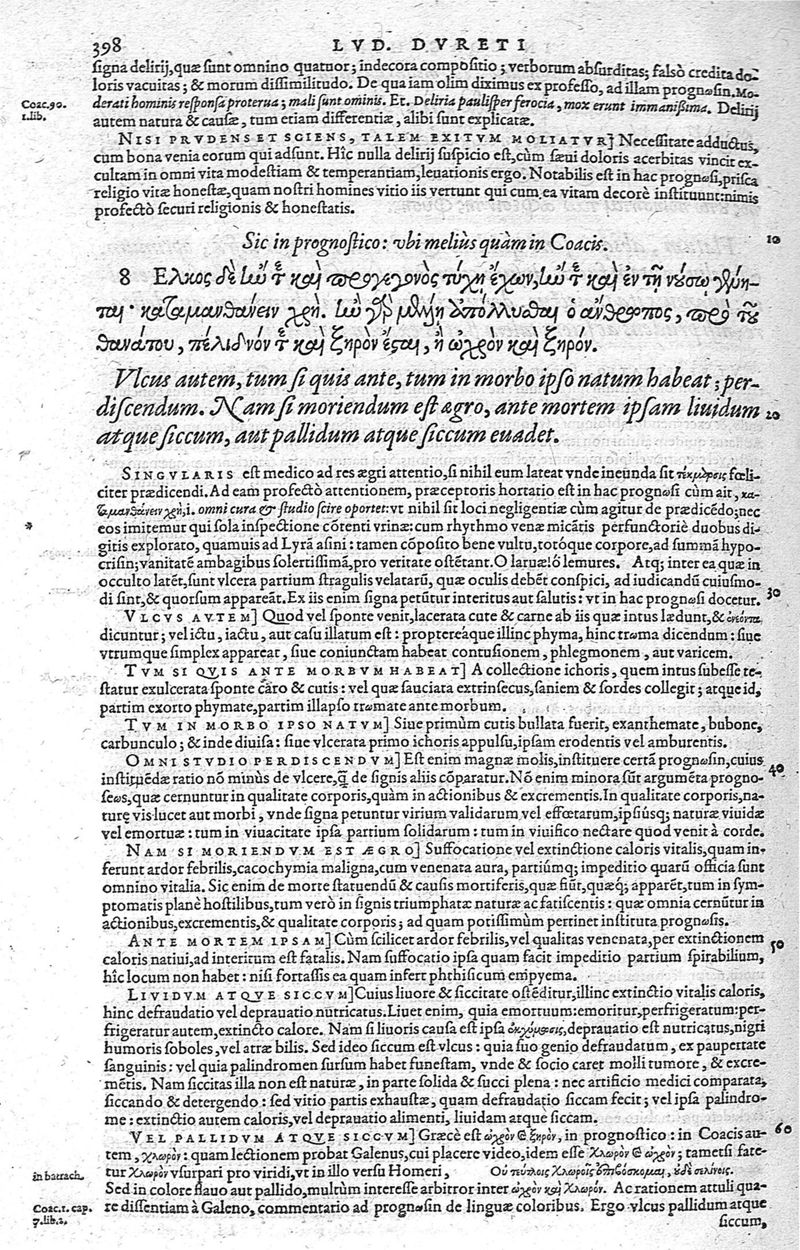 398 LVD. DVRETI
signa delirij, quæ sunt omnino quatuor; indecora compositio; verborum absurditas; falsò credita do-
loris vacuitas; & morum dissimilitudo. De qua iam olim diximus ex professo, ad illam prognωsin. Mo-
Coac. 90. derati hominis responsa proterua; mali sunt ominis. Et. Deliria paulisper ferocia, mox erunt immanißima. Delirij
1. lib. autem natura & causæ, tum etiam differentiæ, alibi sunt explicatæ.
NISI PRVDENS ET SCIENS, TALEM EXITVM MOLIATVR] Necessitate adductus,
cum bona venia eorum qui adsunt. Hîc nulla delirij suspicio est, cùm sæui doloris acerbitas vincit ex-
cultam in omni vita modestiam & temperantiam, leuationis ergo. Notabilis est in hac prognωsi, prisca
religio vitæ honestæ, quam nostri homines vitio iis vertunt qui cum ea vitam decorè instituunt: nimis
profectò securi religionis & honestatis.
Sic in prognostico: vbi meliùs quàm in Coacis. 10
8 Ελκος δὲ ἰὼ τε καὶ προγεγονὸς τύχῃ ἔχων, ἰὼ τε καὶ ἐν τῇ νούσῳ γίνη-
ται· καταμανθάνειν χρή. ἰὼ γὰρ μέλλῃ ἀπόλλυσθαι ὁ ἄνθρωπος, πρὸ τοῦ
θανάτου, πέλιδνόν τε καὶ ξηρὸν ἔσται, ἢ ὠχρὸν καὶ ξηρόν.
Vlcus autem, tum si quis ante, tum in morbo ipso natum habeat; per-
discendum. Nam si moriendum est ægro, ante mortem ipsam liuidum 20
atque siccum, aut pallidum atque siccum euadet.
SINGVLARIS est medico ad res ægri attentio, si nihil eum lateat vnde ineunda sit τεκμάρσις fœli-
citer prædicendi. Ad eam profectò attentionem, præceptoris hortatio est in hac prognωsi cùm ait, κα-
ταμανθάνειν χρὴ, i. omni cura & studio scire oportet: vt nihil sit loci negligentiæ cùm agitur de prædicẽdo; nec
* eos imitemur qui sola inspectione cõtenti vrinæ: cum rhythmo venæ micãtis perfunctoriè duobus di-
gitis explorato, quamuis ad Lyrã asini: tamen cõposito bene vultu, totóque corpore, ad summã hypo-
crisin; vanitatẽ ambagibus solertissimã, pro veritate ostẽtant. O laruæ! ó lemures. Atq; inter ea quæ in
occulto latẽt, sunt vlcera partium stragulis velatarũ, quæ oculis debẽt conspici, ad iudicandũ cuiusmo-
di sint, & quorsum appareãt. Ex iis enim signa petũtur interitus aut salutis: vt in hac prognωsi docetur. 30
VLCVS AVTEM] Quod vel sponte venit, lacerata cute & carne ab iis quæ intus lædunt, &
dicuntur; vel ictu, iactu, aut casu illatum est: proptereàque illinc phyma, hinc trωma dicendum: siue
vtrumque simplex appareat, siue coniunctam habeat contusionem, phlegmonem, aut varicem.
TVM SI QVIS ANTE MORBVM HABEAT] A collectione ichoris, quem intus subesse te-
statur exulcerata sponte caro & cutis: vel quæ sauciata extrinsecus, saniem & sordes collegit; atque id,
partim exorto phymate, partim illapso trωmate ante morbum.
TVM IN MORBO IPSO NATVM] Siue primùm cutis bullata fuerit, exanthemate, bubone,
carbunculo; & inde diuisa: siue vlcerata primo ichoris appulsu, ipsam erodentis vel amburentis.
OMNI STVDIO PERDISCENDVM] Est enim magnæ molis, instituere certã prognωsin, cuius
instituẽdæ ratio nõ minùs de vlcere, q̃ de signis aliis cõparatur. Nõ enim minora sũt argumẽta progno- 40
seωs, quæ cernuntur in qualitate corporis, quàm in actionibus & excrementis. In qualitate corporis, na-
turę vis lucet aut morbi, vnde signa petuntur virium validarum vel effœtarum, ipsiúsq; naturæ viuidæ
vel emortuæ: tum in viuacitate ipsa partium solidarum: tum in viuifico nectare quod venit à corde.
NAM SI MORIENDVM EST ÆGRO] Suffocatione vel extinctione caloris vitalis, quam in-
ferunt ardor febrilis, cacochymia maligna, cum venenata aura, partiúmq; impeditio quarũ officia sunt
omnino vitalia. Sic enim de morte statuendũ & causis mortiferis, quæ fiũt, quæq́; apparẽt, tum in sym-
ptomatis planè hostilibus, tum verò in signis triumphatæ naturæ ac fatiscentis: quæ omnia cernũtur in
actionibus, excrementis, & qualitate corporis; ad quam potissimùm pertinet instituta prognωsis.
ANTE MORTEM IPSAM] Cùm scilicet ardor febrilis, vel qualitas venenata, per extinctionem 50
caloris natiui, ad interitum est fatalis. Nam suffocatio ipsa quam facit impeditio partium spirabilium,
hîc locum non habet: nisi fortassis ea quam infert phthisicum empyema.
LIVIDVM ATQVE SICCVM] Cuius liuore & siccitate ostẽditur, illinc extinctio vitalis caloris,
hinc defraudatio vel deprauatio nutricatus. Liuet enim, quia emortuum: emoritur, perfrigeratum: per-
frigeratur autem, extincto calore. Nam si liuoris causa est ipsa ἐκχύμωσις, deprauatio est nutricatus, nigri
humoris soboles, vel atræ bilis. Sed ideo siccum est vlcus: quia suo genio defraudatum, ex paupertate
sanguinis: vel quia palindromen sursum habet funestam, vnde & socio caret molli tumore, & excre-
mẽtis. Nam siccitas illa non est naturæ, in parte solida & succi plena: nec artificio medici comparata,
siccando & detergendo: sed vitio partis exhaustæ, quam defraudatio siccam fecit; vel ipsa palindro-
me: extinctio autem caloris, vel deprauatio alimenti, liuidam atque siccam.
VEL PALLIDVM ATQVE SICCVM] Græcè est ὠχρὸν & ξηρὸν, in prognostico: in Coacis au- 60
tem, χλωρὸν: quam lectionem probat Galenus, cui placere video, idem esse χλωρὸν & ὠχρὸν; tametsi fate-
in batrach. tur χλωρὸν vsurpari pro viridi, vt in illo versu Homeri, Οὐ τεύτλοις χλωροῖς ἐπιβόσκομαι, οὐδὲ σελίνοις.
Sed in colore flauo aut pallido, multùm interesse arbitror inter ὠχρὸν καὶ χλωρόν. Ac rationem attuli qua-
Coac. 1. cap. re dissentiam à Galeno, commentario ad prognωsin de linguæ coloribus. Ergo vlcus pallidum atque
7. lib. 2. siccum,